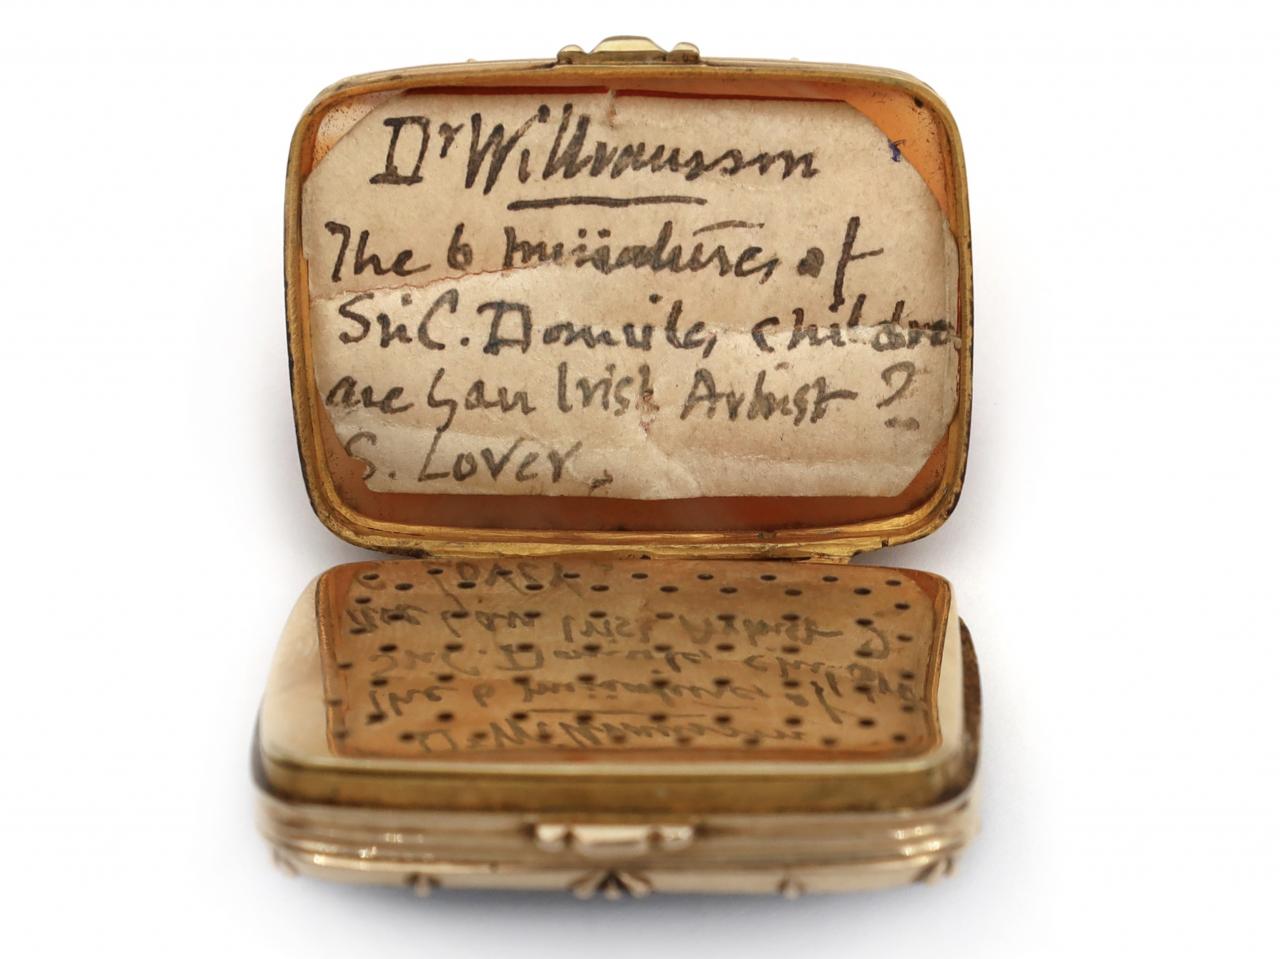 Dr Williamson
The 6 miniatures of
Sir C. Domvile, children
are by an Irish Artist ?
S. Lover,